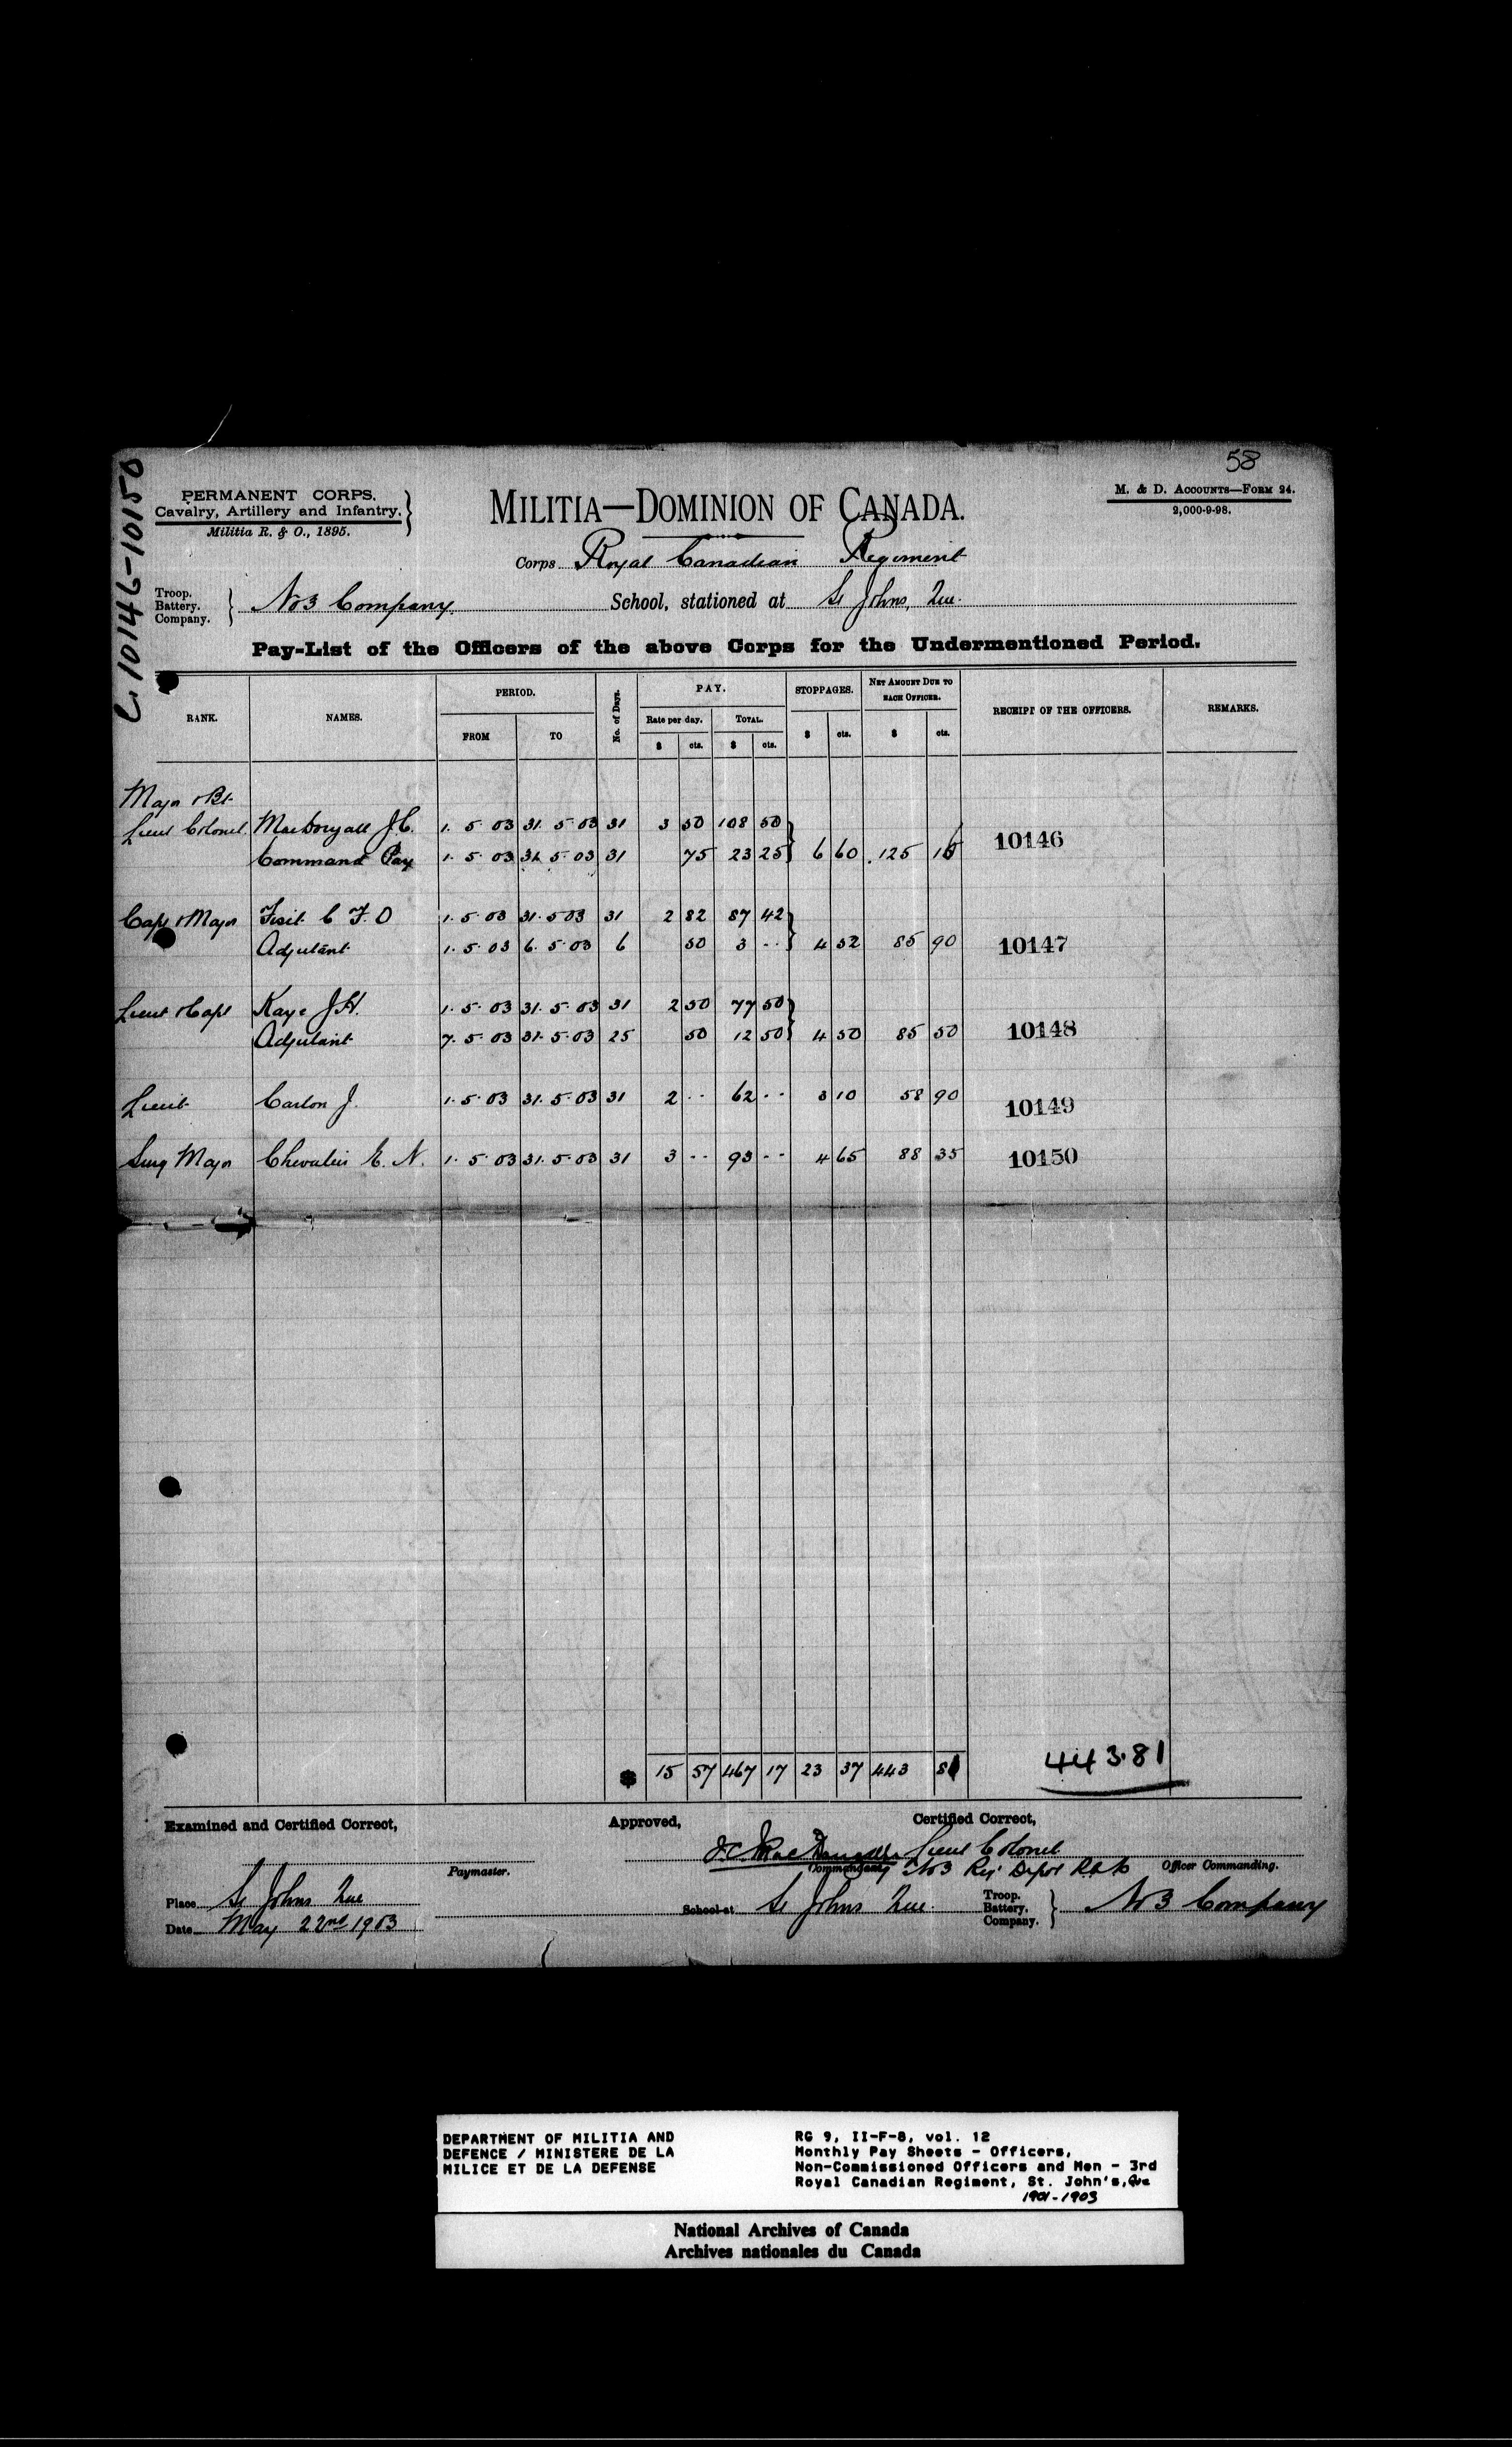 58
C. 10146-10150
PERMANENT CORPS.
Cavalry, Artillery and Infantry.
Militia R. & O., 1895.
MILITIA—DOMINION OF CANADA.
M. & D. ACCOUNTS—FORM 24.
2,000-9-98.
Corps Royal Canadian Regiment
Troop. Battery. Company. } No 3 Company. School, stationed at St Johns, Que.
Pay-List of the Officers of the above Corps for the Undermentioned Period.
RANK. NAMES. PERIOD. FROM TO No. of Days. PAY. Rate per day. $ cts. TOTAL. $ cts. STOPPAGES. $ cts. NET AMOUNT DUE TO EACH OFFICER. $ cts. RECEIPT OF THE OFFICERS. REMARKS.
Major & Bt
Lieut Colonel MacDougall J.C. 1. 5. 03 31. 5. 03 31 3 50 108 50
Command Pay 1. 5. 03 31. 5. 03 31 75 23 25 6 60 125 15 10146
Capt & Major Fiset C F. O 1. 5. 03 31. 5 03 31 2 82 87 42
Adjutant 1. 5. 03 6. 5. 03 6 50 3 .. 4 52 85 90 10147
Lieut & Capt Kaye J.H. 1. 5. 03 31. 5. 03 31 2 50 77 50
Adjutant 7. 5. 03 31. 5. 03 25 50 12 50 4 50 85 50 10148
Lieut Carlon J. 1. 5. 03 31. 5. 03 31 2 .. 62 .. 3 10 58 90 10149
Surg Major Chevalier E. N. 1. 5. 03 31. 5. 03 31 3 .. 93 .. 4 65 88 35 10150
15 57 467 17 23 37 443 81 443.81
Examined and Certified Correct, Approved, Certified Correct,
J.C. MacDougall Lieut Colonel
Paymaster. Commanding No 3 Reg Depot R.C.R Officer Commanding.
Place St Johns Que School at St Johns Que. Troop. Battery. Company. } No 3 Company
Date May 22nd 1903
DEPARTMENT OF MILITIA AND
DEFENCE / MINISTERE DE LA
MILICE ET DE LA DEFENSE
RG 9, II-F-8, vol. 12
Monthly Pay Sheets - Officers,
Non-Commissioned Officers and Men - 3rd
Royal Canadian Regiment, St. John's, Que
1901-1903
National Archives of Canada
Archives nationales du Canada